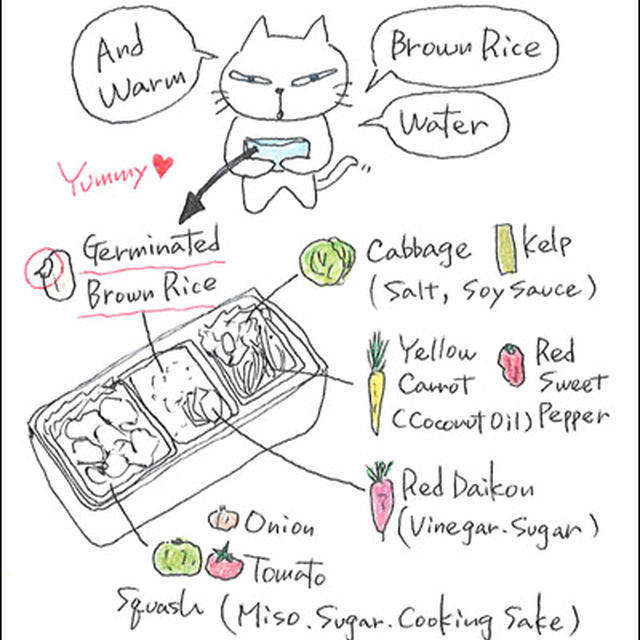 And
Warm
Brown Rice
Water
Yummy
Germinated
Brown Rice
Cabbage
Kelp
(Salt, Soy Sauce)
Yellow
Carrot
(Coconut Oil)
Red
Sweet
Pepper
Red Daikon
(Vinegar. Sugar)
Onion
Tomato
Squash (Miso. Sugar. Cooking Sake)